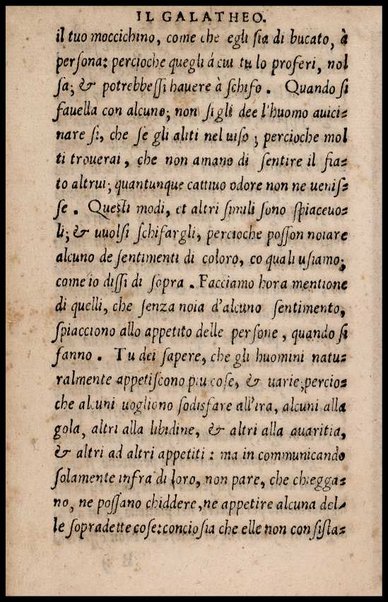 IL GALATHEO.
il tuo moccichino, come che egli sia di bucato, à
persona: percioche quegli à cui tu lo proferi, nol
sa; & potrebbesi hauere à schifo. Quando si
fauella con alcuno; non si gli dee l'huomo auici-
nare si, che se gli aliti nel uiso; percioche mol
ti trouerai, che non amano di sentire il fia-
to altrui; quantunque cattiuo odore non ne uenis-
se. Questi modi, et altri simili sono spiaceuo-
li; & uuolsi schifargli, percioche posson noiare
alcuno de sentimenti di coloro, co quali usiamo;
come io dissi di sopra. Facciamo hora mentione
di quelli, che senza noia d'alcuno sentimento,
spiacciono allo appetito delle persone, quando si
fanno. Tu dei sapere, che gli huomini natu-
ralmente appetiscono piu cose, & uarie; percio-
che alcuni uogliono sodisfare all'ira, alcuni alla
gola, altri alla libidine, & altri alla auaritia,
& altri ad altri appetiti: ma in communicando
solamente infra di loro, non pare, che chiegga-
no, ne possano chiddere, ne appetire alcuna del-
le sopradette cose: conciosia che elle non consista-